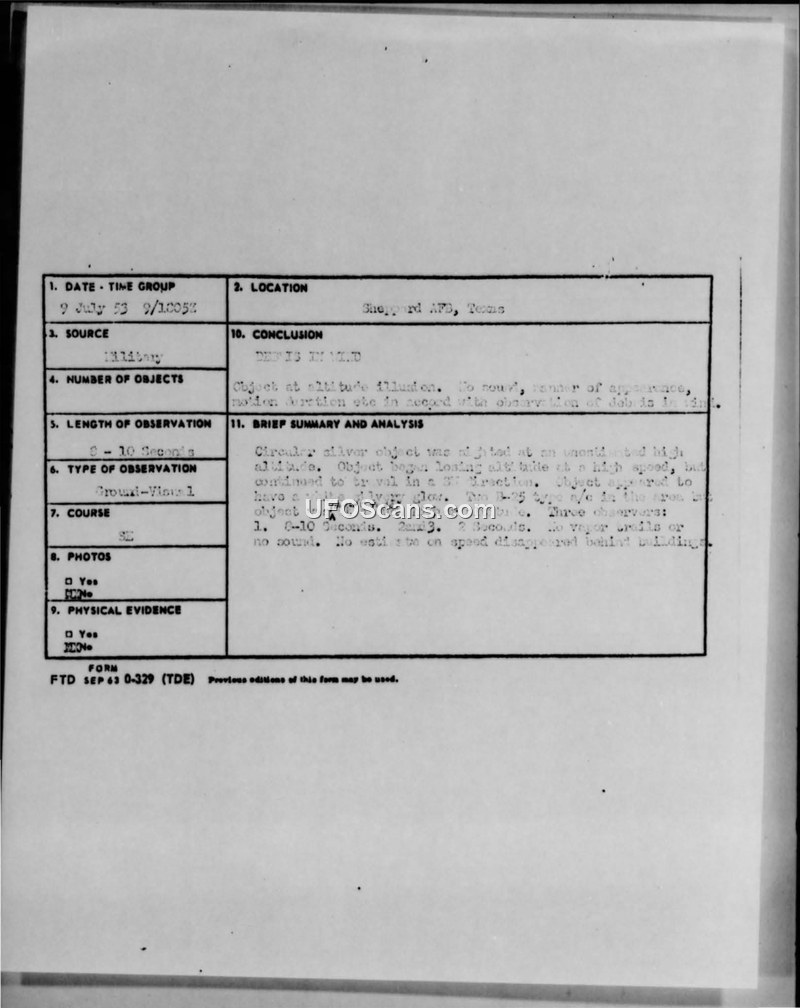 1. DATE - TIME GROUP
9 July 53 9/1805Z
2. LOCATION
Sheppard AFB, Texas
3. SOURCE
Military
10. CONCLUSION
4. NUMBER OF OBJECTS
Object at altitude illusion. No sound, manner of appearance,
motion duration etc in accord with observation of debris in wind.
5. LENGTH OF OBSERVATION
8 - 10 Seconds
11. BRIEF SUMMARY AND ANALYSIS
Circular silver object was sighted at an unestimated high
altitude. Object began losing altitude at a high speed, but
continued to travel in a direction. Object appeared to
have a silvery glow. Two type a/c in the area but
object Three observers:
1. 8-10 Seconds. 2and3. 2 Seconds. No vapor trails or
no sound. No estimate on speed disappeared behind buildings.
6. TYPE OF OBSERVATION
Ground-Visual
7. COURSE
8. PHOTOS
□ Yes
No
9. PHYSICAL EVIDENCE
□ Yes
No
FORM
FTD SEP 63 0-329 (TDE) Previous editions of this form may be used.
UFOScans.com